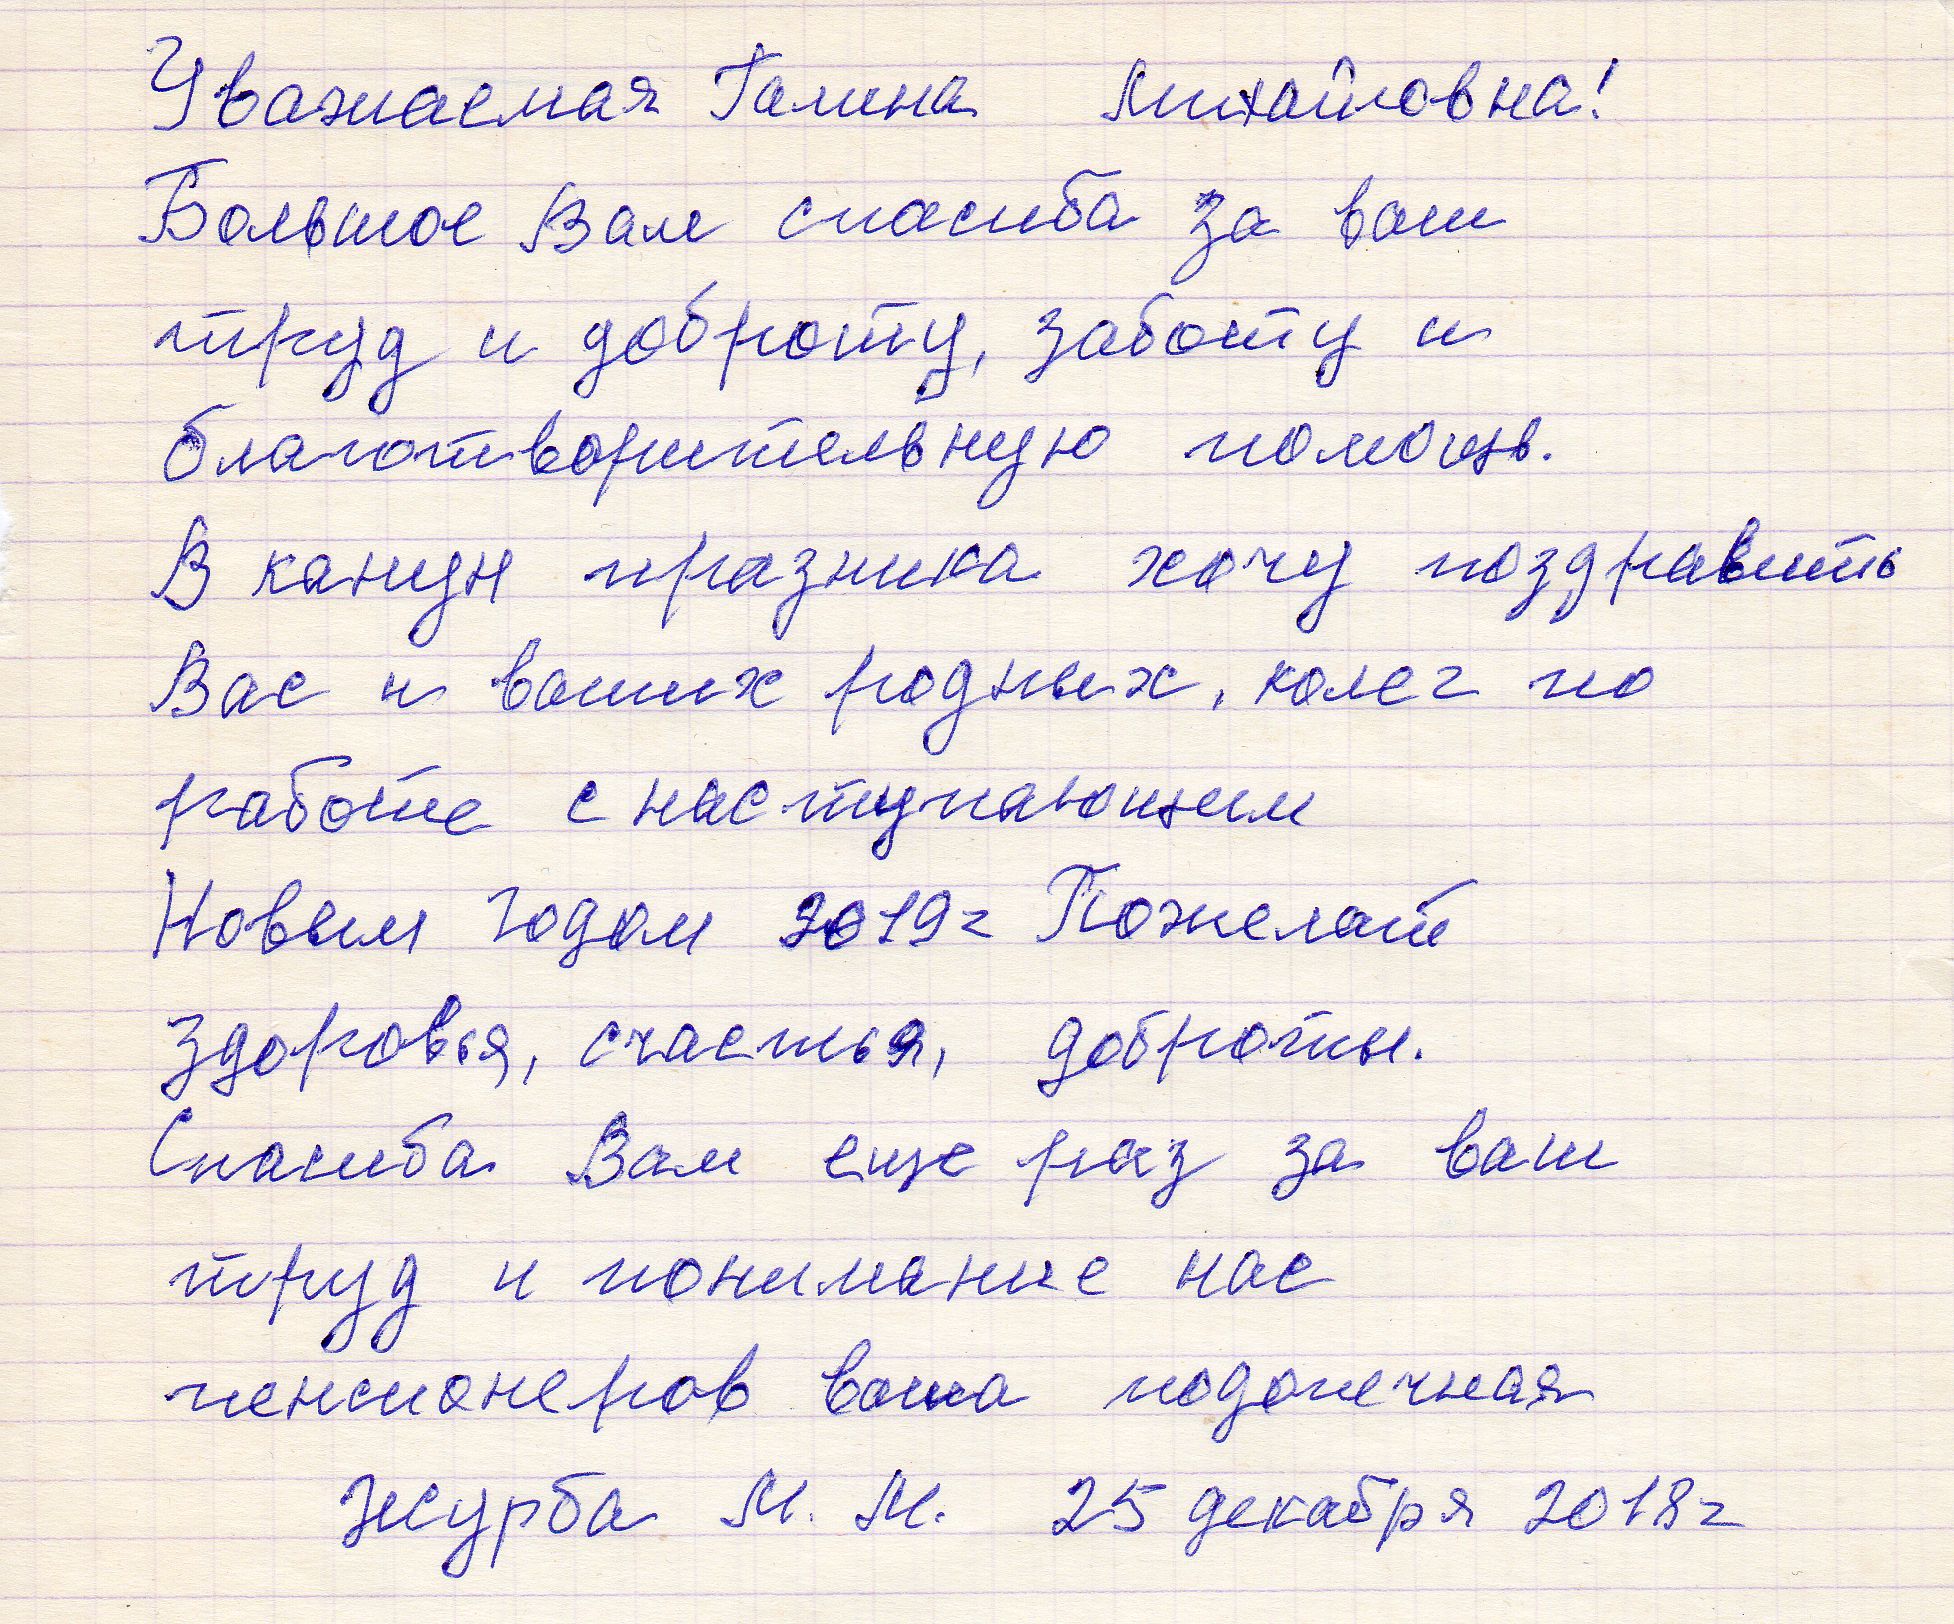 Уважаемая Галина Михайловна!
Большое Вам спасиба за ваш
труд и доброту, заботу и
благотворительную помощь.
В канун празника хочу поздравить
Вас и ваших родных, колег по
работе с наступающим
Новым годом 2019г Пожелат
здоровья, счастья, доброты.
Спасиба Вам еще раз за ваш
труд и понимание нас
пенсионеров ваша подопечная
Журба М. М. 25 декабря 2018г